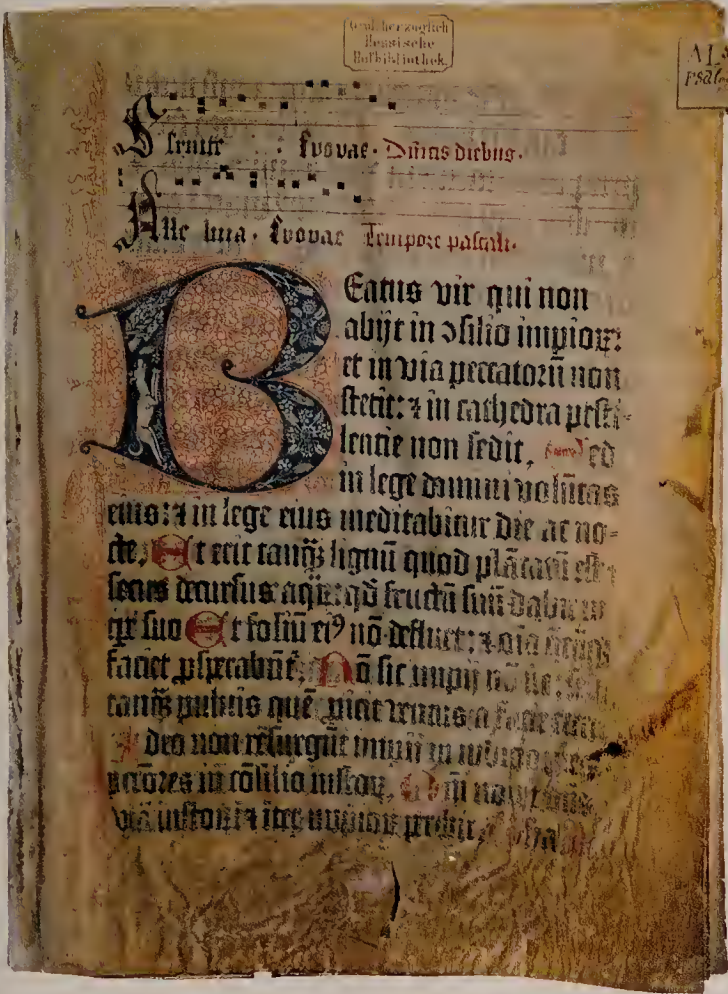 Großherzoglich
Hessische
Hofbibliothek.
Seruite Euouae. Diuis diebus.
Alle luia. Euouae Tempore pascali.
BEatus vir qui non
abijt in ↄsilio impioꝝ:
et in via peccatoꝝ non
stetit: ⁊ in cathedra pesti-
lentie non sedit, Sed
in lege domini volūtas
eius: ⁊ in lege eius meditabitur die ac no-
cte, Et erit tanqȝ lignū quod plātatū est
secus decursus aqꝝ: qđ fructū suū dabit in
tꝑe suo Et foliū eiꝰ nō defluet: ⁊ oīa
faciet ꝓsperabūt, Nō sic impij nō sic:
tanqȝ puluis quē ꝓicit ventus a facie
Ideo non resurgūt impij in
peccatores in cōsilio iustoꝝ,
viā iustoꝝ ⁊ iter impioꝝ peribit,